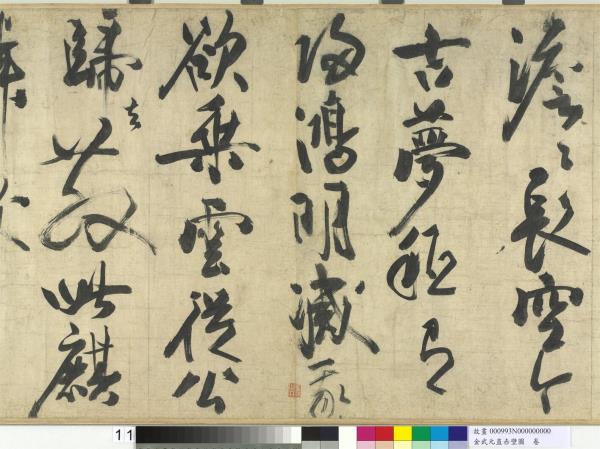 澹〻長空今
古夢秪有
歸鴻明滅我
欲乘雲從公
歸去散此麒
11
故畫 000993N000000000
金武元直赤壁圖 卷